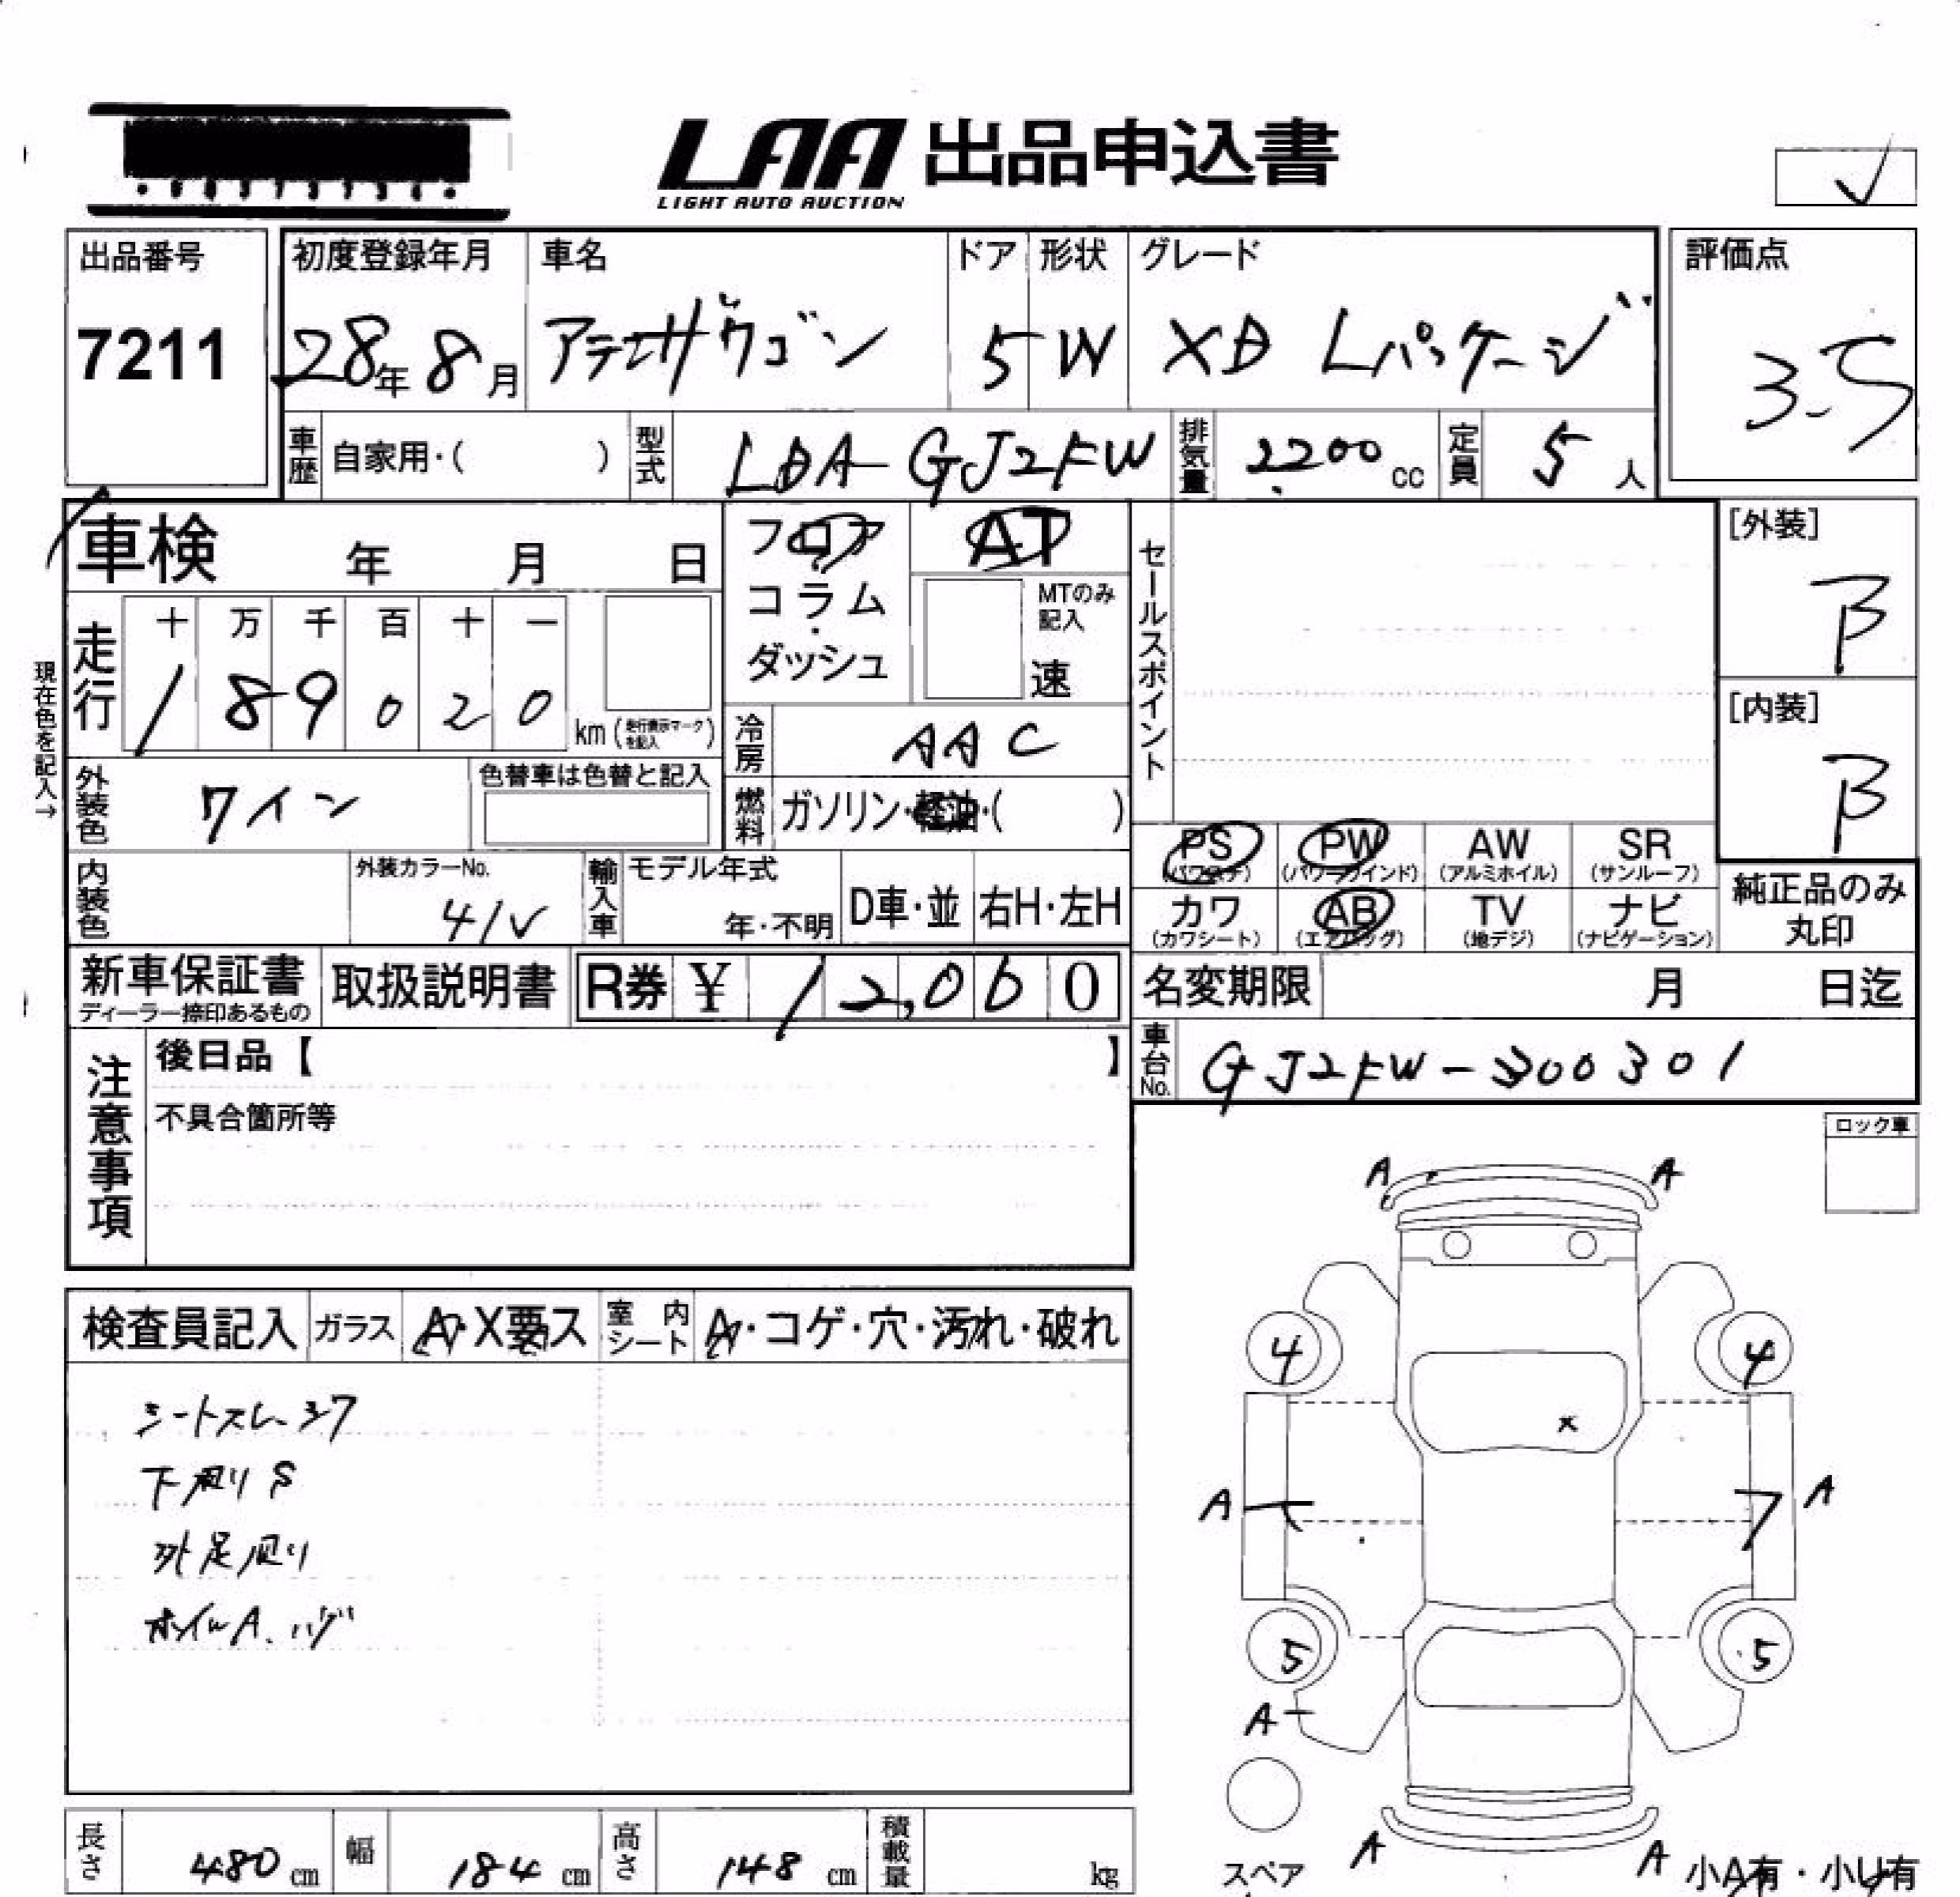 LAA 出品申込書
LIGHT AUTO AUCTION
出品番号
7211
初度登録年月
28年8月
車名
アテンザワゴン
ドア
5
形状
W
グレード
XD Lパッケージ
評価点
3.5
車歴 自家用・( )
型式 LDA-GJ2FW
排気量 2200 cc
定員 5 人
車検 年 月 日
フロア
コラム
・
ダッシュ
AT
MTのみ
記入
速
セールスポイント
[外装]
B
[内装]
B
現在色を記入→
走行
十 万 千 百 十 一
1 8 9 0 2 0 km (走行表示マークを記入)
冷房 AAC
外装色 ワイン
色替車は色替と記入
燃料 ガソリン・軽油・( )
内装色
外装カラーNo.
41V
輸入車
モデル年式
年・不明
D車・並
右H・左H
PS
(パワステ)
PW
(パワーウインド)
AW
(アルミホイル)
SR
(サンルーフ)
カワ
(カワシート)
AB
(エアバッグ)
TV
(地デジ)
ナビ
(ナビゲーション)
純正品のみ
丸印
新車保証書
ディーラー捺印あるもの
取扱説明書
R券 ¥ 12,060
名変期限 月 日迄
車台No. GJ2FW-300301
注意事項
後日品【 】
不具合箇所等
ロック車
検査員記入
ガラス A・X要ス
室内シート A・コゲ・穴・汚れ・破れ
シートスレ、シワ
下廻りS
外足廻り
ホイルA、ハゲ
A A
4 4
X
A A
5 5
A
A A
スペア
小A有・小U有
長さ 480 cm
幅 184 cm
高さ 148 cm
積載量 kg